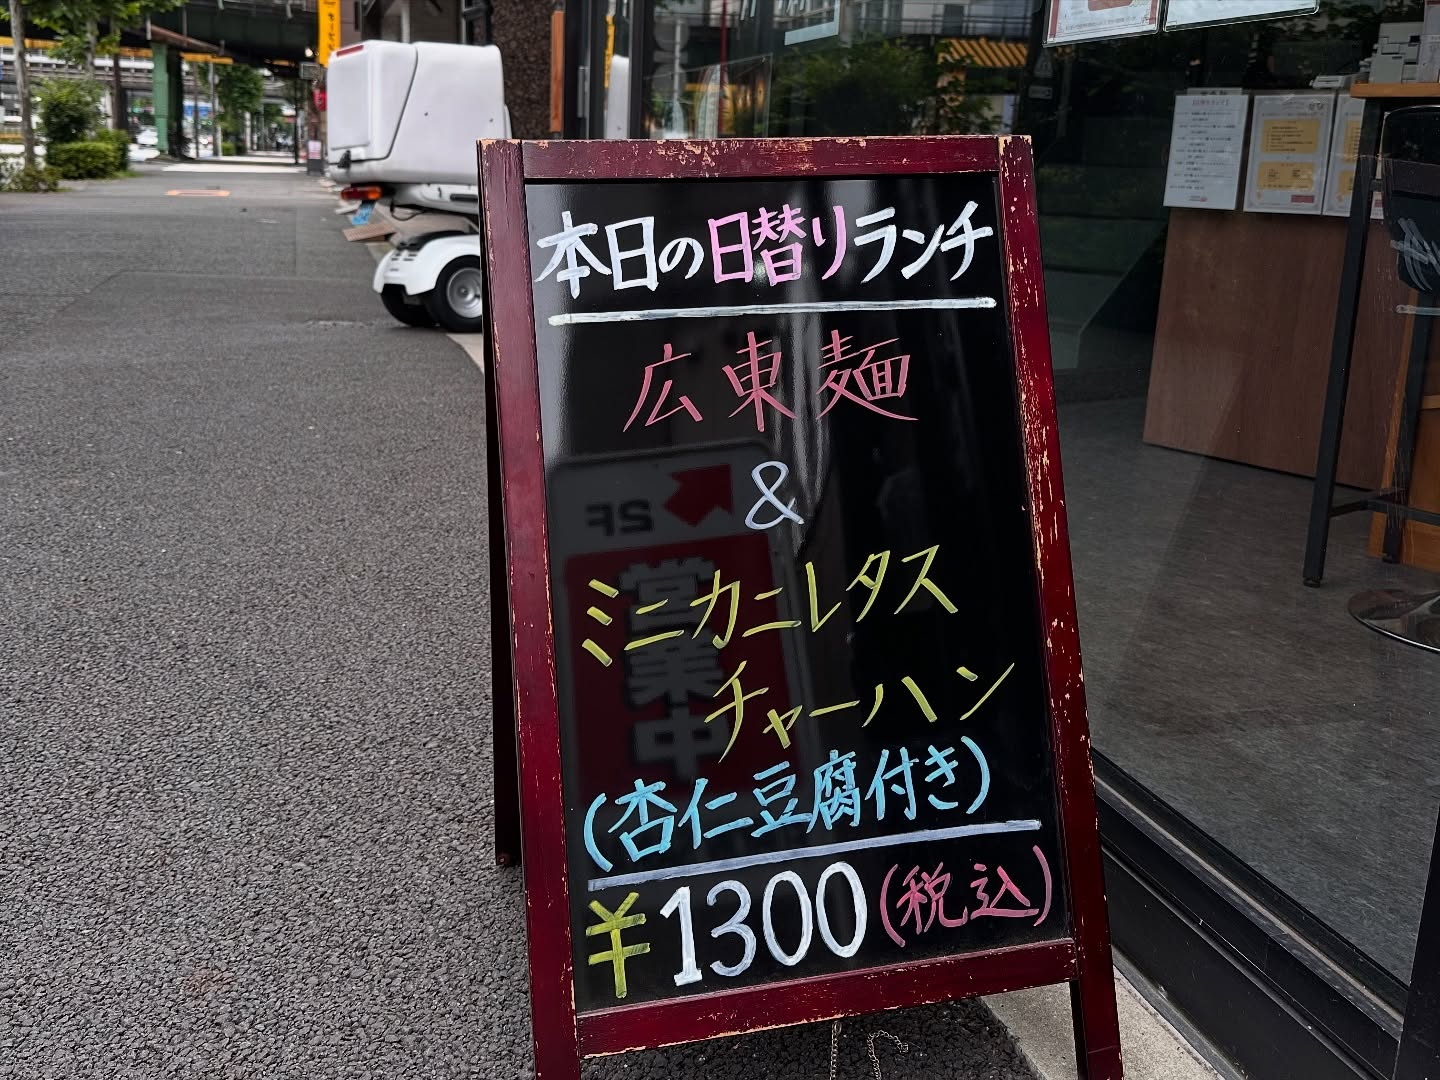 本日の日替りランチ
広東麺
&
ミニカニレタス
チャーハン
(杏仁豆腐付き)
¥1300(税込)
5F
営業中